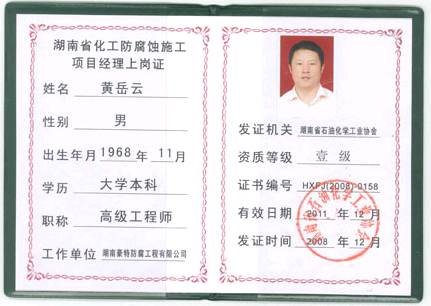 湖南省化工防腐蚀施工
项目经理上岗证
姓名 黄岳云
性别 男
出生年月 1968 年 11 月
学历 大学本科
职称 高级工程师
工作单位 湖南豪特防腐工程有限公司
发证机关 湖南省石油化学工业协会
资质等级 壹 级
证书编号 HXFJ(2008)-0158
有效日期 2011 年 12 月
发证时间 2008 年 12 月
湖南省石油化学工业协会